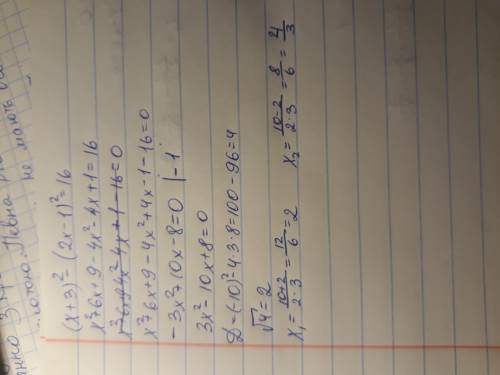 не мають
(x+3)²-(2x-1)²=16
x²+6x+9-4x²-4x+1=16
x²+6x+9-4x²-4x+1-16=0
x²+6x+9-4x²+4x-1-16=0
-3x²+10x-8=0 |-1
3x²-10x+8=0
D=(-10)²-4·3·8=100-96=4
√4=2
x₁=(10+2)/(2·3)=12/6=2 x₂=(10-2)/(2·3)=8/6=4/3